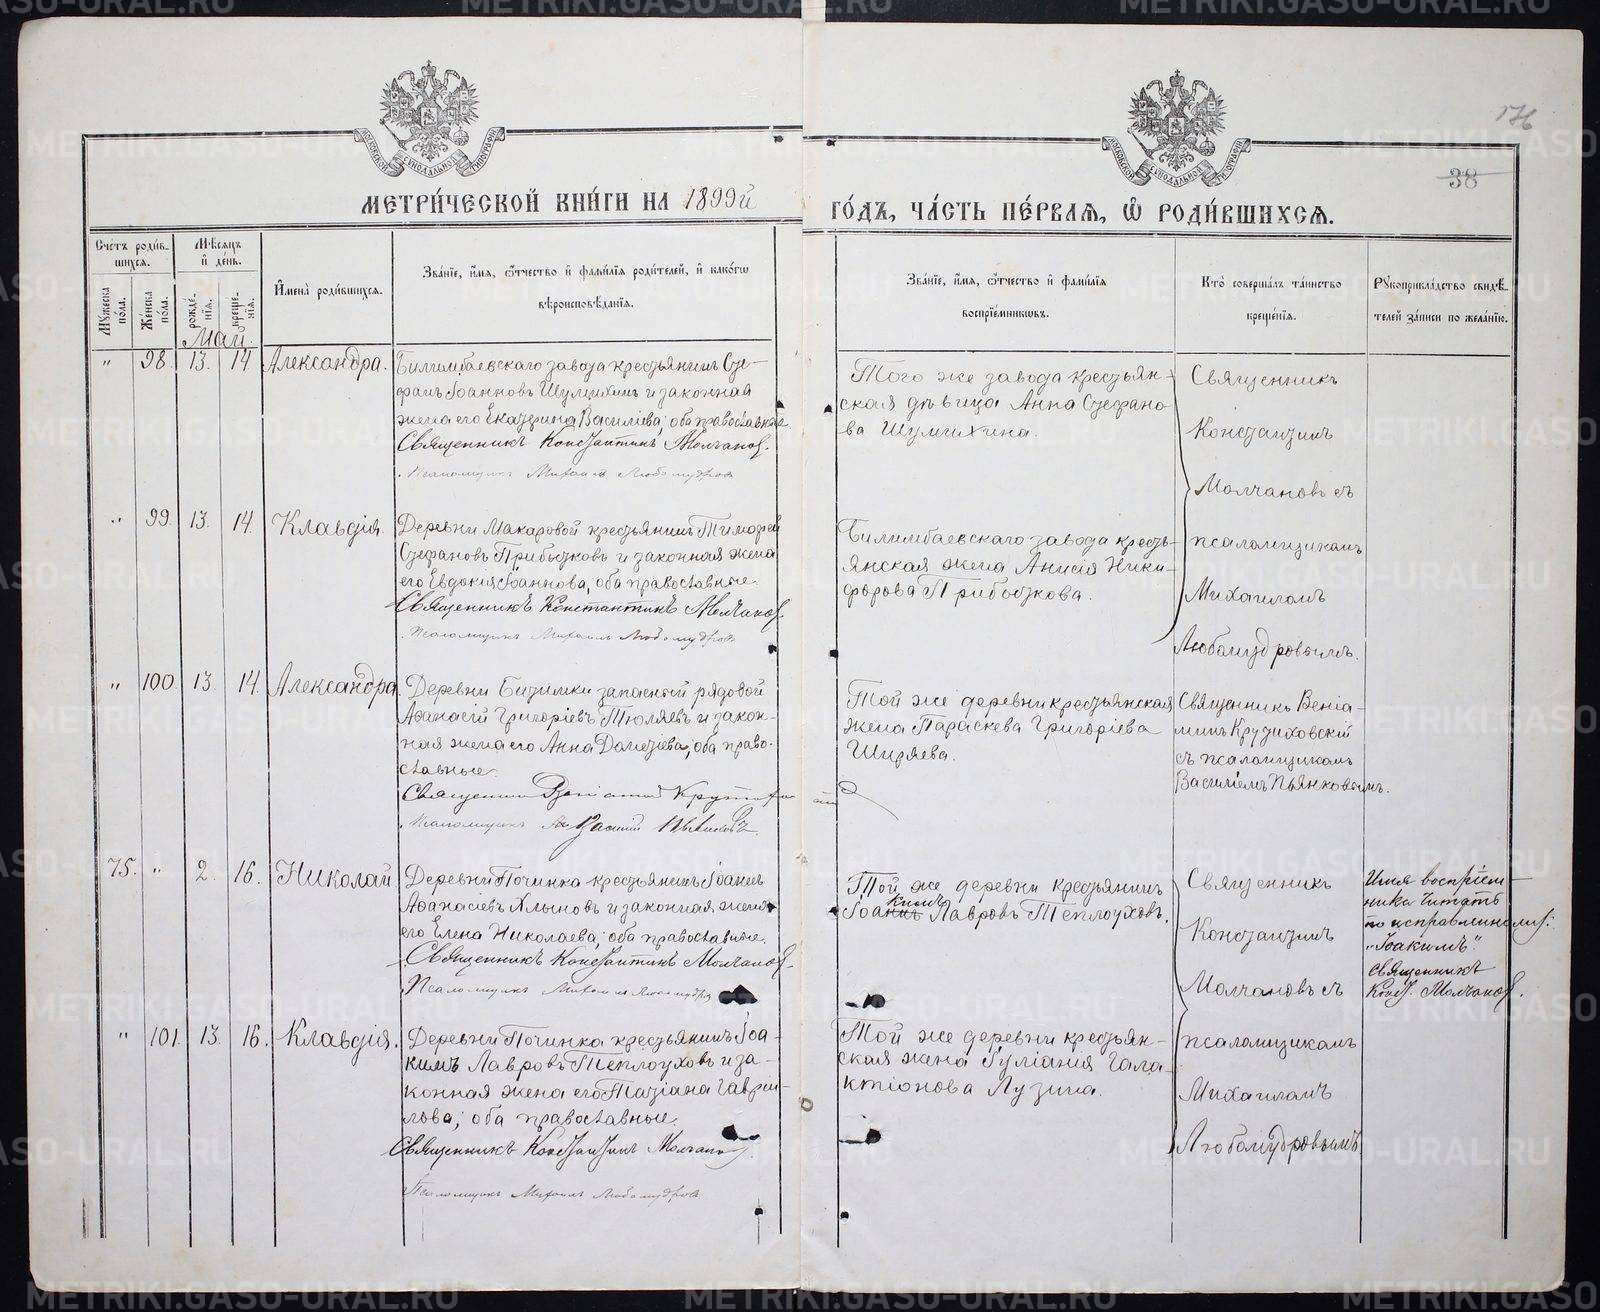 176
38
МЕТРИ́ЧЕСКОЙ КНИ́ГИ НА 1899й ГО́ДЪ, ЧА́СТЬ ПЕ́РВАѦ, Ѽ РОДИ́ВШИХСѦ.
Сче́тъ роди́в-
шихсѧ.
Мѣ́сѧцъ
и҆ де́нь.
И҆мена̀ роди́вшихсѧ.
Зва́нїе, и҆́мѧ, ѻ҆́тчество и҆ фами́лїѧ роди́телей, и҆ како́гѡ
вѣроисповѣ́данїѧ.
Зва́нїе, и҆́мѧ, ѻ҆́тчество и҆ фами́лїѧ
воспрїе́мникѡвъ.
Кто̀ соверша́лъ та́инство
креще́нїѧ.
Рꙋкоприкла́дство свидѣ́-
телей за́писи по жела́нїю.
Мꙋ́жеска
по́ла.
Же́нска
по́ла.
рожде́-
нїѧ.
креще́-
нїѧ.
Май.
" 98. 13. 14 Александра.
Билимбаевскаго завода крестьянинъ Сте-
фанъ Іоанновъ Шумихинъ и законная
жена его Екатерина Василіева; оба православные
Священникъ Константинъ Молчановъ.
Псаломщикъ Михаилъ Любомудровъ
Того же завода крестьян-
ская дѣвица Анна Стефано-
ва Шумихина.
Священникъ
Константинъ
Молчановъ съ
" 99. 13. 14. Клавдія.
Деревни Макаровой крестьянинъ Тимофей
Стефановъ Прибытковъ и законная жена
его Евдокия Іоаннова, оба православные.
Священникъ Константинъ Молчановъ
Псаломщикъ Михаилъ Любомудровъ
Билимбаевскаго завода кресть-
янская жена Анисія Ники-
форова Прибыткова.
псаломщикомъ
Михаиломъ
Любомудровымъ.
" 100. 13. 14. Александра.
Деревни Битимки запасный рядовой
Аѳанасій Григоріевъ Тюляевъ и закон-
ная жена его Анна Дометіева; оба право-
славные.
Псаломщикъ Василій Пьянковъ
Той же деревни крестьянская
жена Параскева Григоріева
Ширяева.
Священникъ Веніа-
минъ Крутиховскій
съ псаломщикомъ
Василіемъ Пьянковымъ.
75. " 2. 16. Николай
Деревни Починка крестьянинъ Іоаннъ
Аѳанасіевъ Хлыновъ и законная жена
его Елена Николаева; оба православные.
Священникъ Константинъ Молчановъ
Псаломщикъ Михаилъ Любомудровъ
Той же деревни крестьянинъ
кимъ
Іоаннъ Лавровъ Теплоуховъ.
Священникъ
Константинъ
Молчановъ съ
Имя воспріем-
ника читать
по исправленному:
„Іоакимъ“.
Священникъ
Конст. Молчановъ.
" 101. 13. 16. Клавдія.
Деревни Починка крестьянинъ Іоа-
кимъ Лавровъ Теплоуховъ и за-
конная жена его Татіана Гаврі-
илова; оба православные.
Священникъ Константинъ Молчановъ
Псаломщикъ Михаилъ Любомудровъ
Той же деревни крестьян-
ская жена Іуліания Гала-
ктіонова Лузина.
псаломщикомъ
Михаиломъ
Любомудровымъ
METRIKI.GASO-URAL.RU